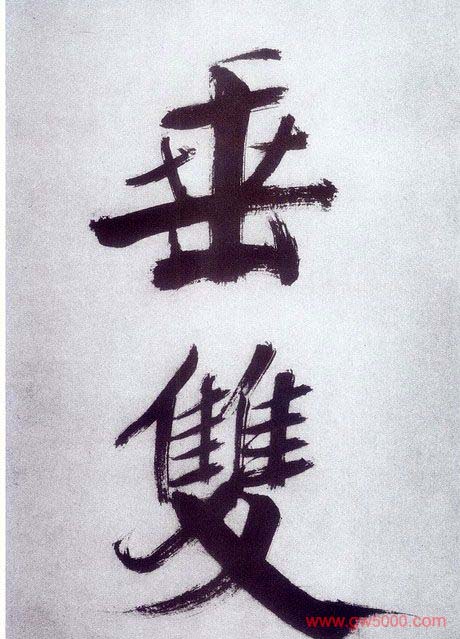 垂
雙
www.gw5000.com